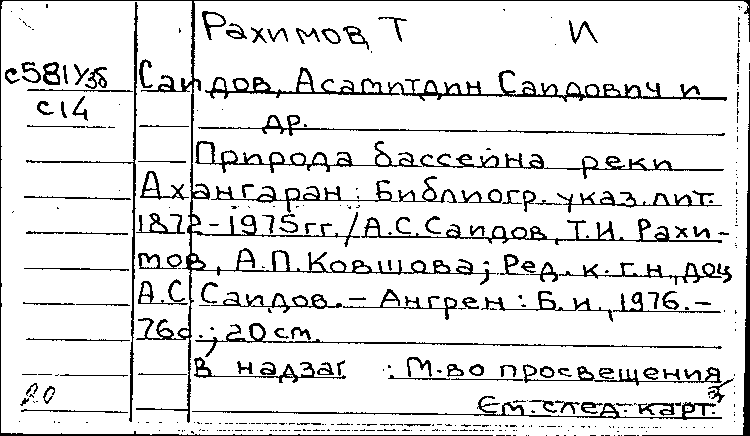 Рахимов, Т И
с581Узб
с14
Саидов, Асамитдин Саидович и
др.
Природа бассейна реки
Ахангаран : Библиогр. указ. лит.
1872-1975 гг. / А.С. Саидов, Т.И. Рахи-
мов, А.П. Ковшова; Ред. к.г.н., доц
А.С. Саидов. - Ангрен : Б. и., 1976. -
76с.; 20 см.
В надзаг : М-во просвещения
См. след. карт.
20